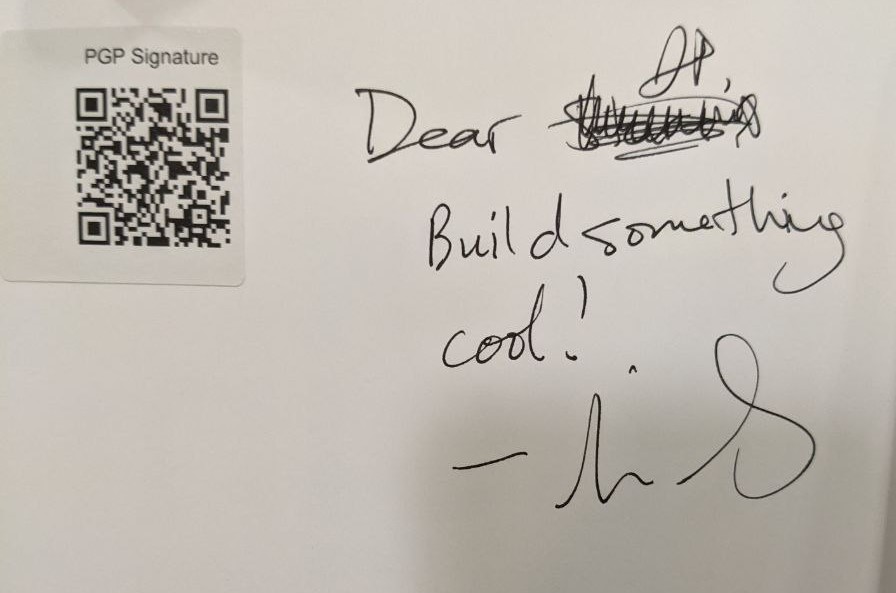 PGP Signature
Dear
Build something
cool!